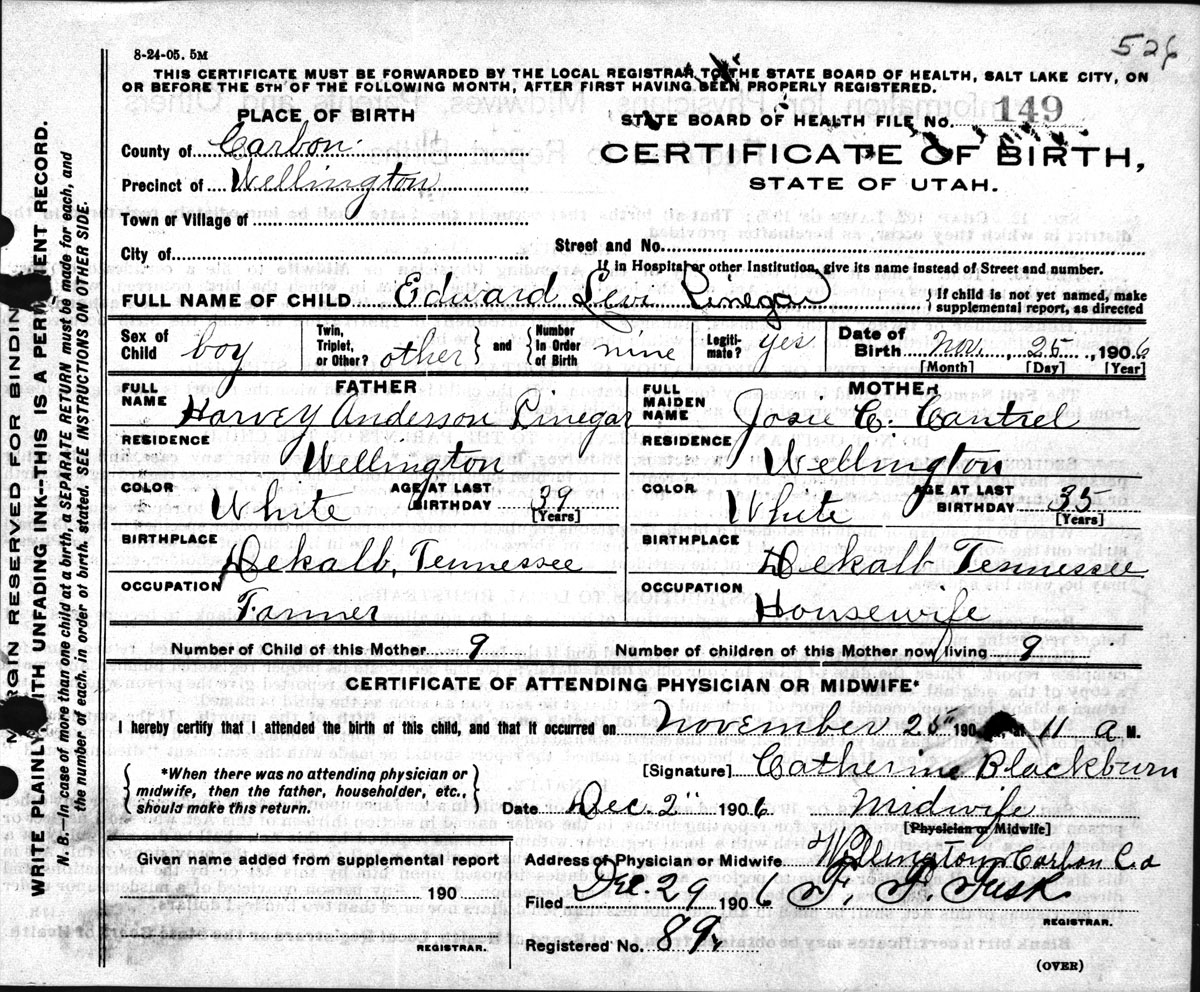 526
8-24-05. 5M
THIS CERTIFICATE MUST BE FORWARDED BY THE LOCAL REGISTRAR TO THE STATE BOARD OF HEALTH, SALT LAKE CITY, ON
OR BEFORE THE 5TH OF THE FOLLOWING MONTH, AFTER FIRST HAVING BEEN PROPERLY REGISTERED.
PLACE OF BIRTH
STATE BOARD OF HEALTH FILE NO. 149
County of Carbon
CERTIFICATE OF BIRTH,
Precinct of Wellington
STATE OF UTAH.
Town or Village of
City of
Street and No.
If in Hospital or other Institution, give its name instead of Street and number.
FULL NAME OF CHILD Edward Levi Pinegar
If child is not yet named, make
supplemental report, as directed
Sex of Child boy Twin, Triplet, or Other? other and Number In Order of Birth nine Legiti-mate? yes Date of Birth Nov. 25, 1906
[Month] [Day] [Year]
FATHER
FULL NAME Harvey Anderson Pinegar
RESIDENCE Wellington
COLOR White AGE AT LAST BIRTHDAY 39
[Years]
BIRTHPLACE Dekalb, Tennessee
OCCUPATION Farmer
MOTHER
FULL MAIDEN NAME Josie C. Cantrel
RESIDENCE Wellington
COLOR White AGE AT LAST BIRTHDAY 35
[Years]
BIRTHPLACE Dekalb Tennessee
OCCUPATION Housewife
Number of Child of this Mother 9 Number of children of this Mother now living 9
CERTIFICATE OF ATTENDING PHYSICIAN OR MIDWIFE*
I hereby certify that I attended the birth of this child, and that it occurred on November 25" 190 at 11 a M.
*When there was no attending physician or
midwife, then the father, householder, etc.,
should make this return.
[Signature] Catherine Blackburn
Date Dec. 2" 1906 Midwife
[Physician or Midwife]
Given name added from supplemental report
190
REGISTRAR.
Address of Physician or Midwife Wellington Carbon Co
Filed Dec. 29 1906
REGISTRAR.
Registered No. 89
(OVER)
MARGIN RESERVED FOR BINDIN
WRITE PLAINLY WITH UNFADING INK--THIS IS A PERMANENT RECORD.
N. B.—In case of more than one child at a birth, a SEPARATE RETURN must be made for each, and
the number of each, in order of birth, stated. SEE INSTRUCTIONS ON OTHER SIDE.